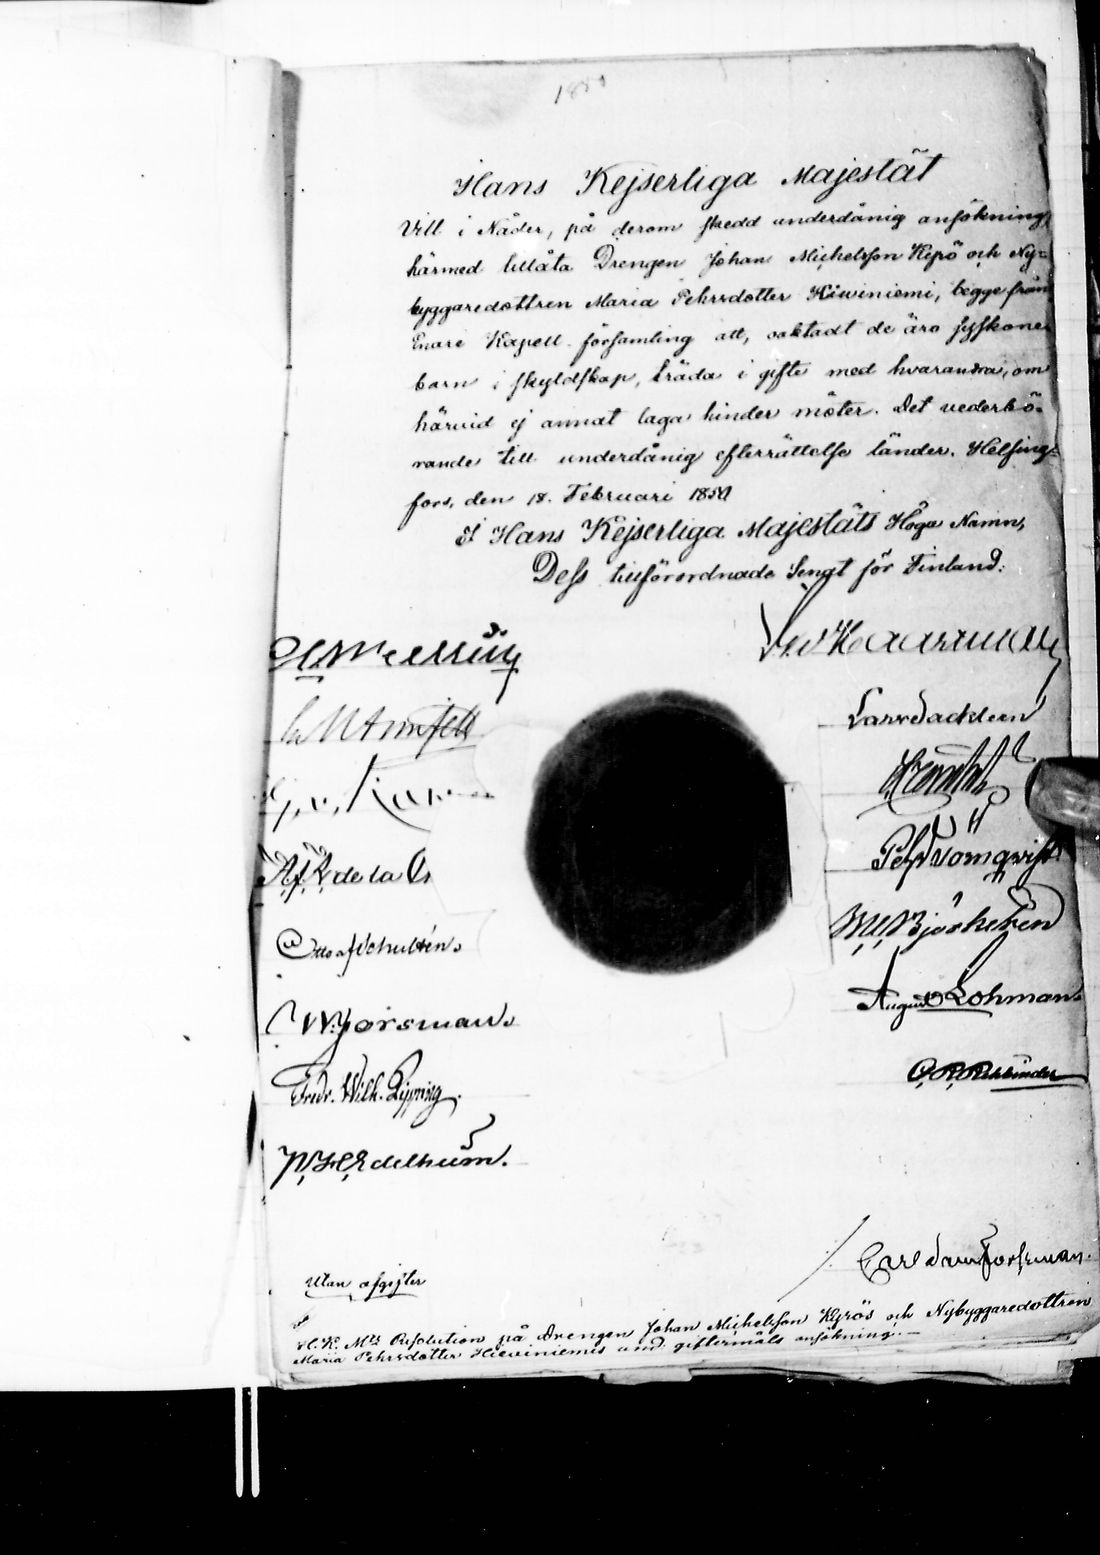 Hans Kejserliga Majestät
Vill i Nåder, på derom skedd underdånig ansökning,
härmed tillåta Drengen Johan Michelsson Kyrö och Ny-
byggaredottren Maria Pehrsdotter Kiwiniemi, begge från
Enare Kapell församling att, oaktadt de äro syskone
barn i skyldskap, träda i gifte med hvarandra, om
härvid ej annat laga hinder möter. Det vederbö-
rande till underdånig efterrättelse länder. Helsing-
fors, den 18. Februari 1850
I Hans Kejserliga Majestäts Höga Namn,
Dess tillförordnade Senat för Finland:
Haartman
Lars Sackleen
Otto af Schultén.
Björkesten
August Lohman.
W. Forsman.
Fredr. Wilh. Pipping.
Rehbinder
Edelheim.
Carl Forsman.
Utan afgifter
H. K. Mts Resolution på Drengen Johan Michelsson Kyrös och Nybyggaredottren
Maria Pehrsdotter Kiewiniemis und. giftermåls ansökning.